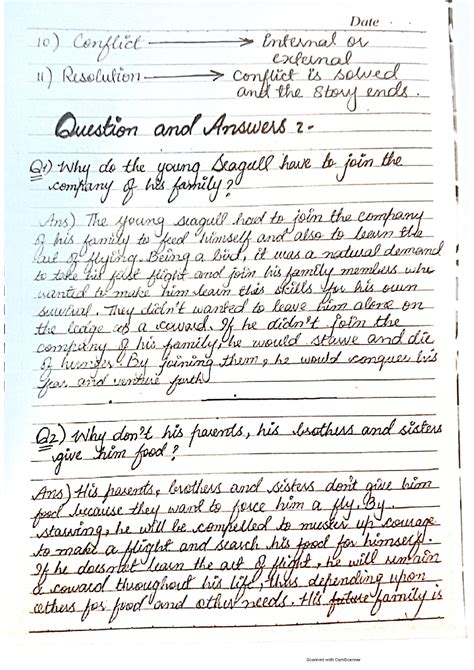 Date
10) Conflict → Internal or
external
11) Resolution → Conflict is solved
and the story ends.
Question and Answers :-
Q1) Why do the young Seagull have to join the
company of his family?
Ans) The young seagull had to join the company
of his family to feed himself and also to learn the
art of flying. Being a bird, it was a natural demand
to take his first flight and join his family members who
wanted to make him learn this skills for his own
survival. They didn't wanted to leave him alone on
the ledge as a coward. If he didn't join the
company of his family, he would starve and die
of hunger. By joining them, he would conquer his
fear and venture forth.
Q2) Why don't his parents, his brothers and sisters
give him food?
Ans) His parents, brothers and sisters don't give him
food because they want to force him a fly. By
starving, he will be compelled to muster up courage
to make a flight and search his food for himself.
If he doesnot learn the art of flight, he will remain
a coward throughout his life, thus depending upon
others for food and other needs. His future family is
Scanned with CamScanner